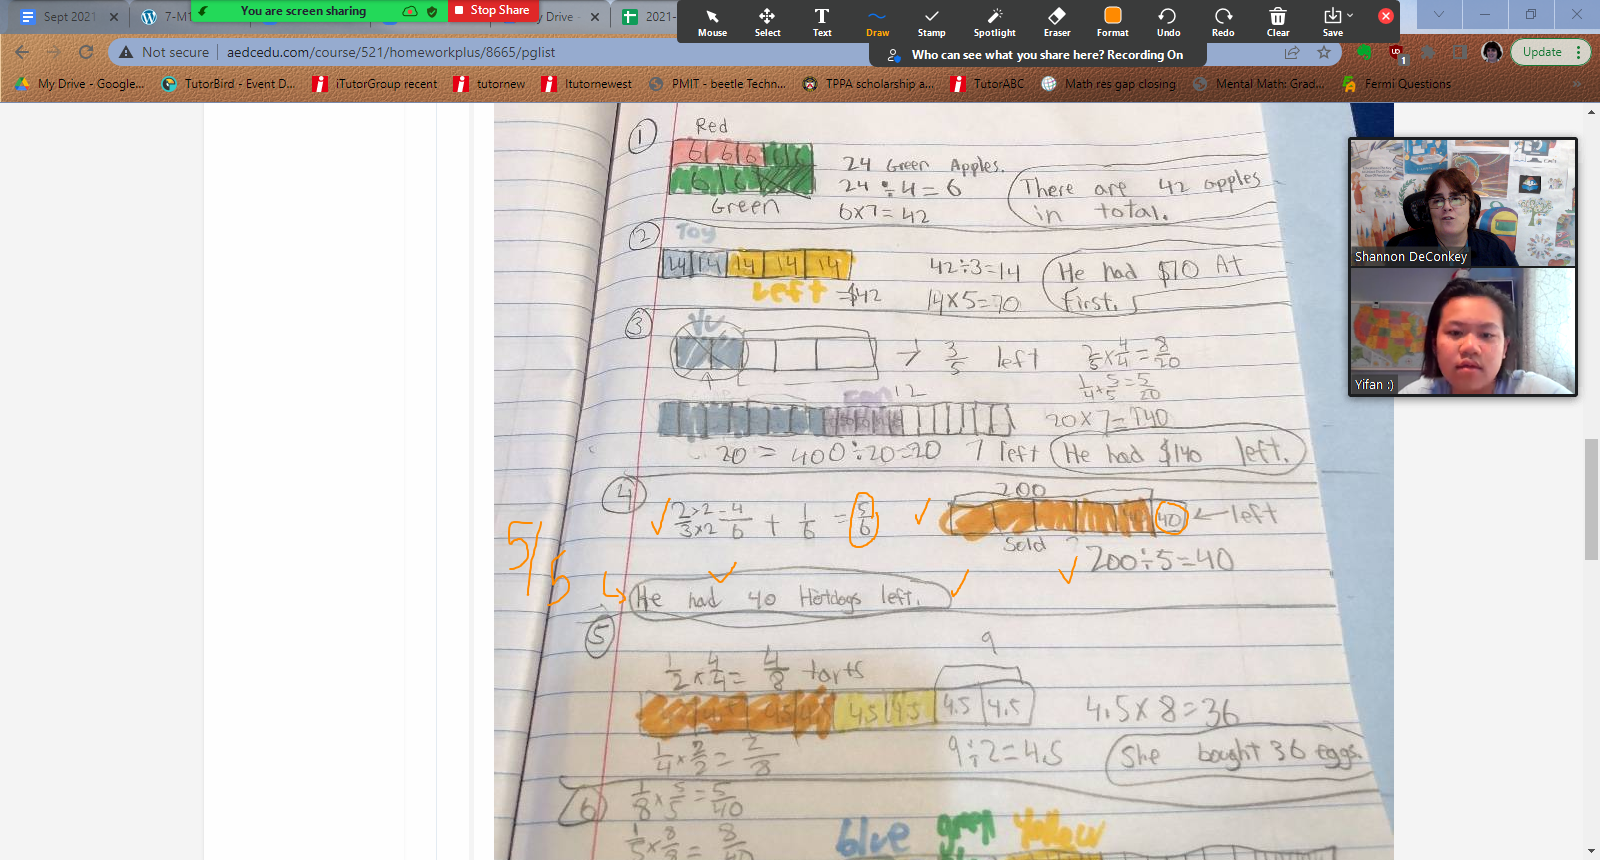 You are screen sharing
Stop Share
Sept 2021
7-M1
My Drive -
2021-
Mouse
Select
Text
Draw
Stamp
Spotlight
Eraser
Format
Undo
Redo
Clear
Save
Who can see what you share here? Recording On
Not secure
aedcedu.com/course/521/homeworkplus/8665/pglist
1
Update
My Drive - Google...
TutorBird - Event D...
iTutorGroup recent
tutornew
Itutornewest
PMIT - beetle Techn...
TPPA scholarship a...
TutorABC
Math res gap closing
Mental Math: Grad...
Fermi Questions
»
Shannon DeConkey
Yifan :)
1
Red
6 6 6 6 6
6 6
Green
24 Green Apples.
24 ÷ 4 = 6
6x7=42
There are 42 apples
in total.
2
Toy
14 14 14 14 14
Left =$42
42÷3=14
14x5=70
He had $70 At
first.
3
→ 3/5 left
2/5 x 4/4 = 8/20
1/4 x 5/5 = 5/20
12
20 x 7=140
20 = 400÷20=20 7 left
He had $140 left.
4
2x2/3x2 = 4/6 + 1/6 = 5/6
200
40 40 ← left
Sold ?
200÷5=40
He had 40 Hotdogs left.
5/5
5
9
1/2 x 4/4 = 4/8 tarts
4.5 4.5 4.5 4.5 4.5 4.5 4.5
4.5 x 8=36
1/4 x 2/2 = 2/8
9÷2=4.5
She bought 36 eggs.
6
1/8 x 5/5 = 5/40
1/5 x 8/8 = 8/40
blue green Yellow